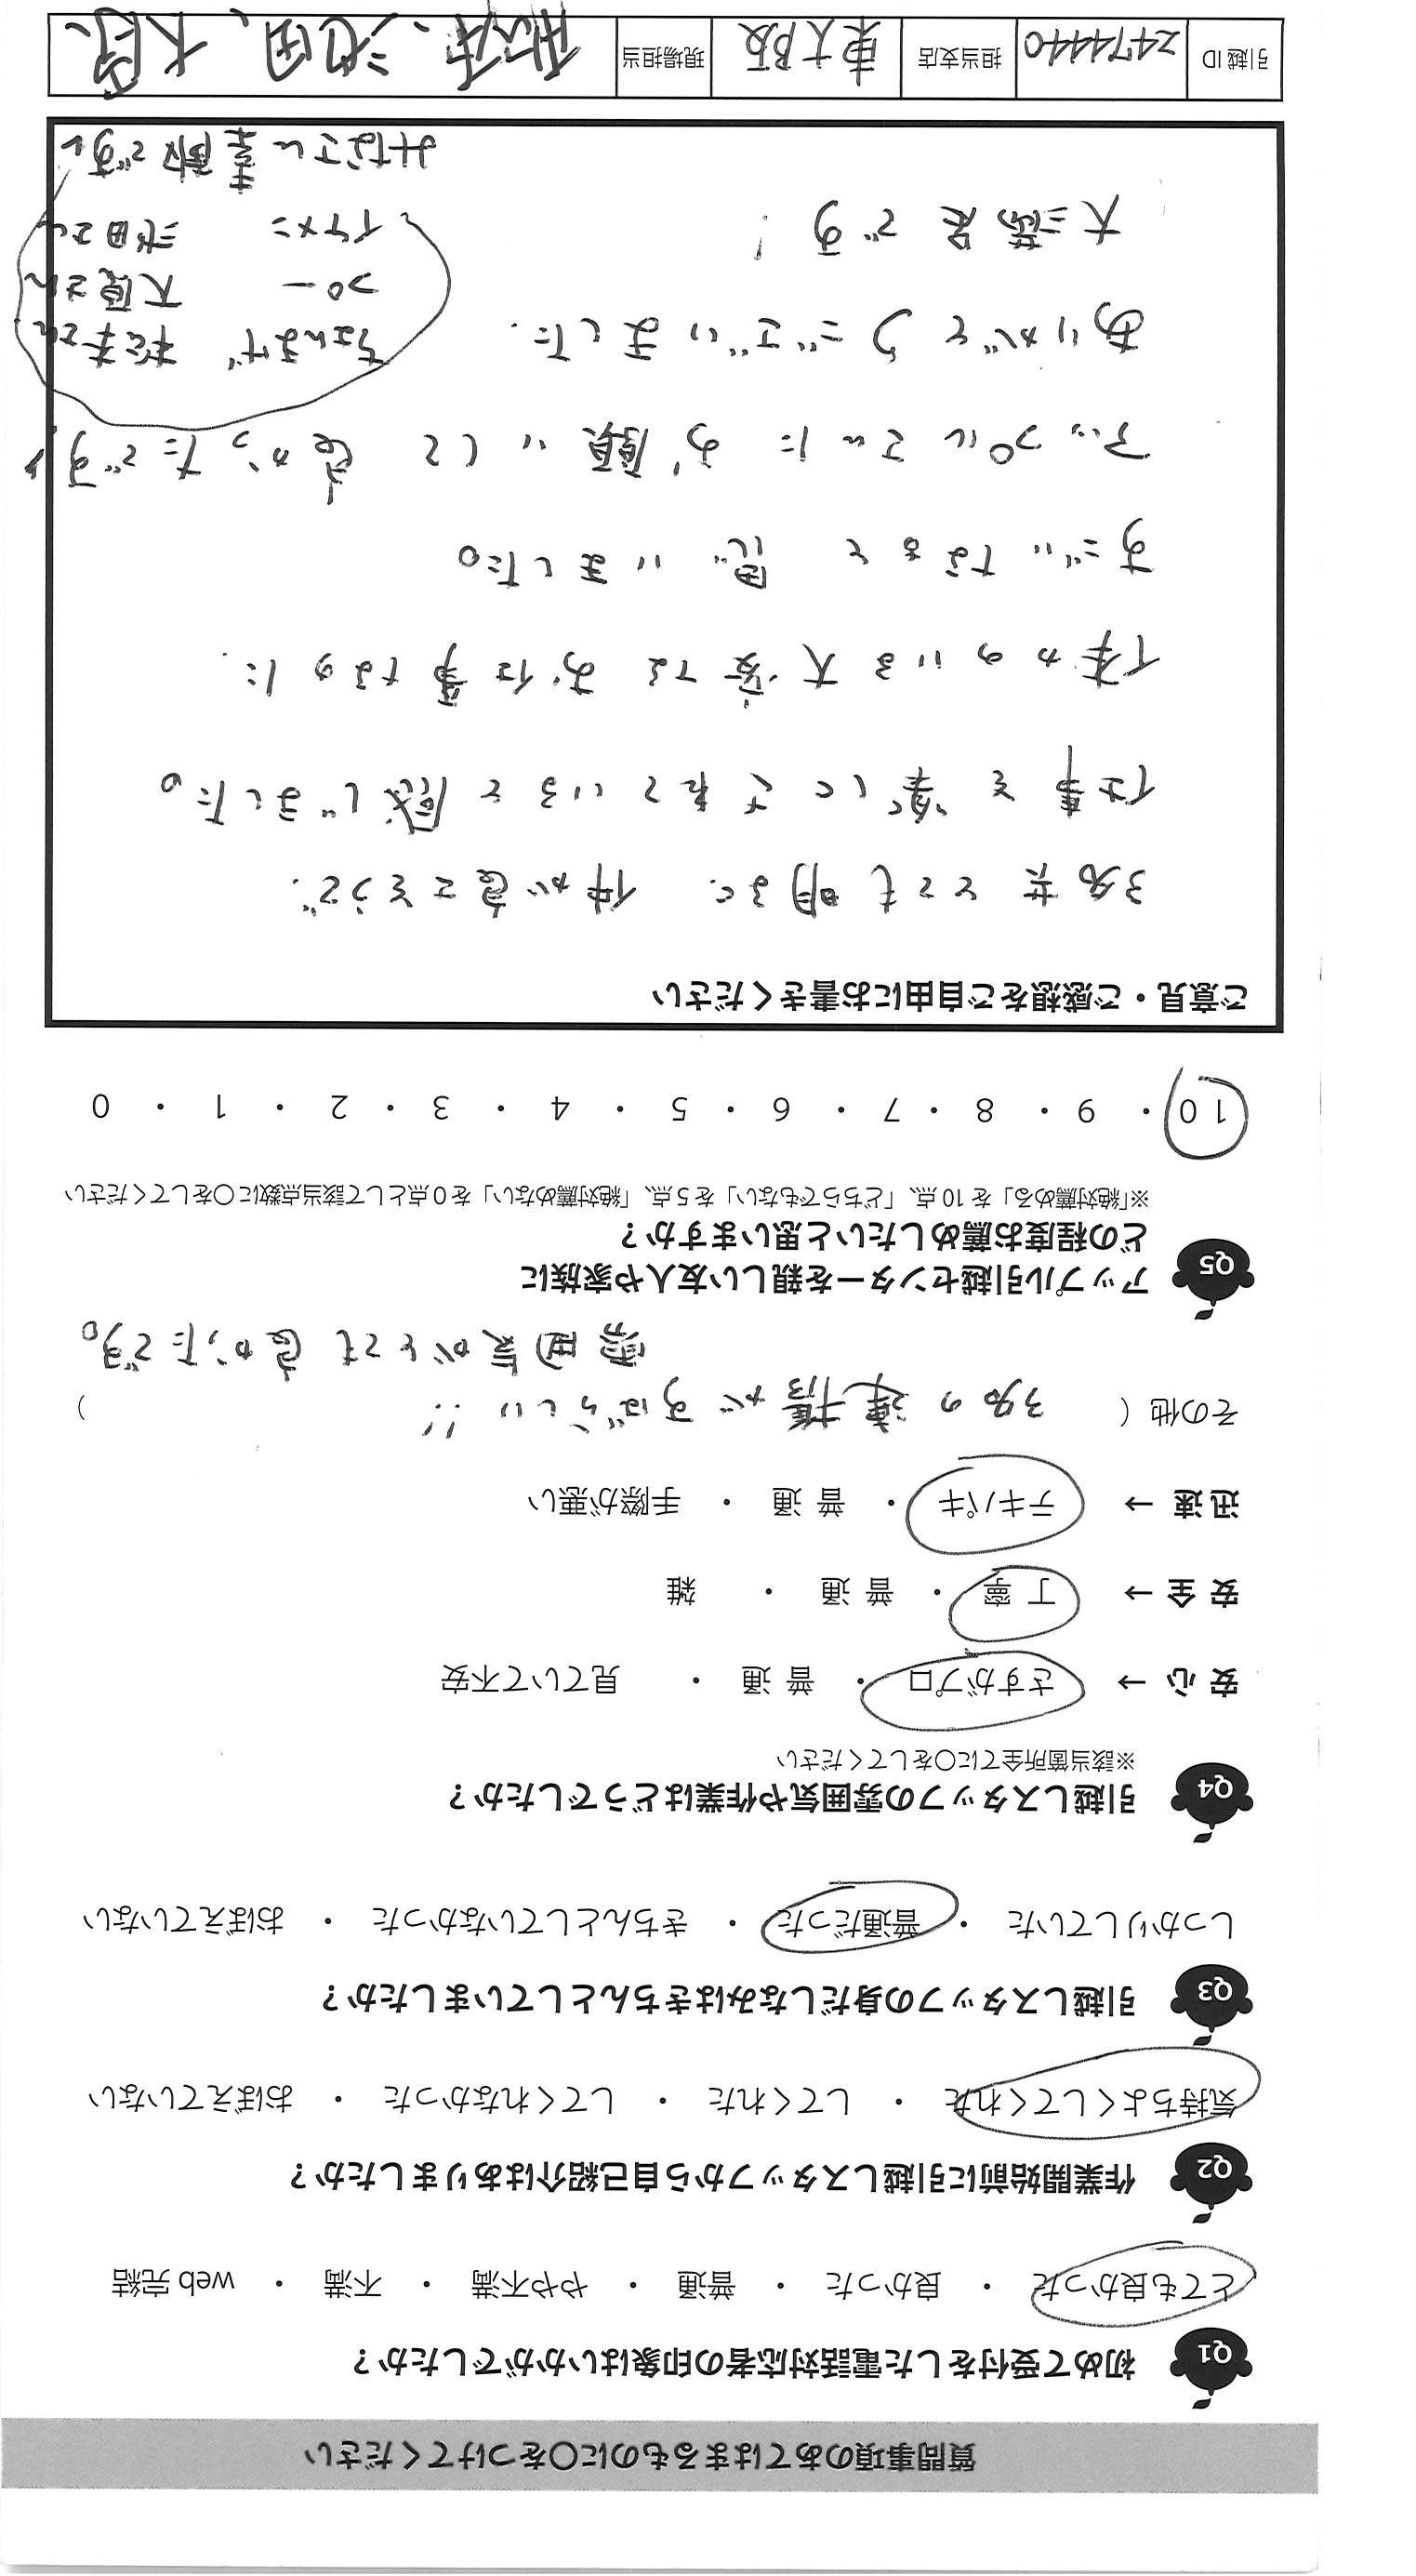 質問事項のあてはまるものに○をつけてください
Q1 初めて受付をした電話対応者の印象はいかがでしたか？
とても良かった ・ 良かった ・ 普通 ・ やや不満 ・ 不満 ・ web 完結
Q2 作業開始前に引越しスタッフから自己紹介はありましたか？
気持ちよくしてくれた ・ してくれた ・ してくれなかった ・ おぼえていない
Q3 引越しスタッフの身だしなみはきちんとしていましたか？
しっかりしていた ・ 普通だった ・ きちんとしていなかった ・ おぼえていない
Q4 引越しスタッフの雰囲気や作業はどうでしたか？
※該当箇所全てに○をしてください
安心 → さすがプロ ・ 普通 ・ 見ていて不安
安全 → 丁寧 ・ 普通 ・ 雑
迅速 → テキパキ ・ 普通 ・ 手際が悪い
その他（ 3名の連携がすばらしい!! ）
雰囲気がとても良かったです。
Q5 アップル引越センターを親しい友人や家族に
どの程度お薦めしたいと思いますか？
※「絶対薦める」を10点、「どちらでもない」を5点、「絶対薦めない」を0点として該当点数に○をしてください
10 ・ 9 ・ 8 ・ 7 ・ 6 ・ 5 ・ 4 ・ 3 ・ 2 ・ 1 ・ 0
ご意見・ご感想をご自由にお書きください
3名共とても明るく 仲が良さそうで、
仕事を楽しくされていると感じました。
体力のいる大変なお仕事なのに、
すごいなぁと思いました。
アップルさんにお願いして良かったです。
ありがとうございました。
大満足です!
ちょんまげ 松本さん
プロー 大原さん
イケメン 池田さん
みなさん素敵です。
引越ID 2474440 担当支店 東大阪 現場担当 松本、池田、大原